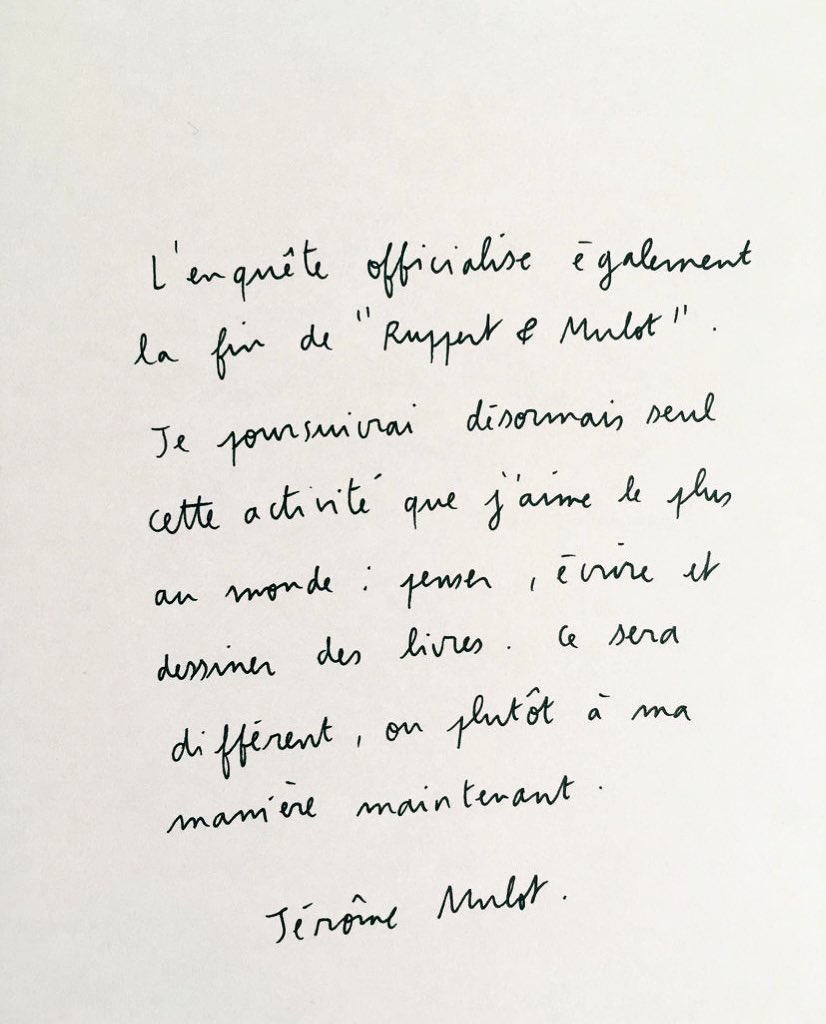 L'enquête officialise également
la fin de "Ruppert & Mulot".
Je poursuivrai désormais seul
cette activité que j'aime le plus
au monde : penser, écrire et
dessiner des livres. Ce sera
différent, ou plutôt à ma
manière maintenant.
Jérôme Mulot.